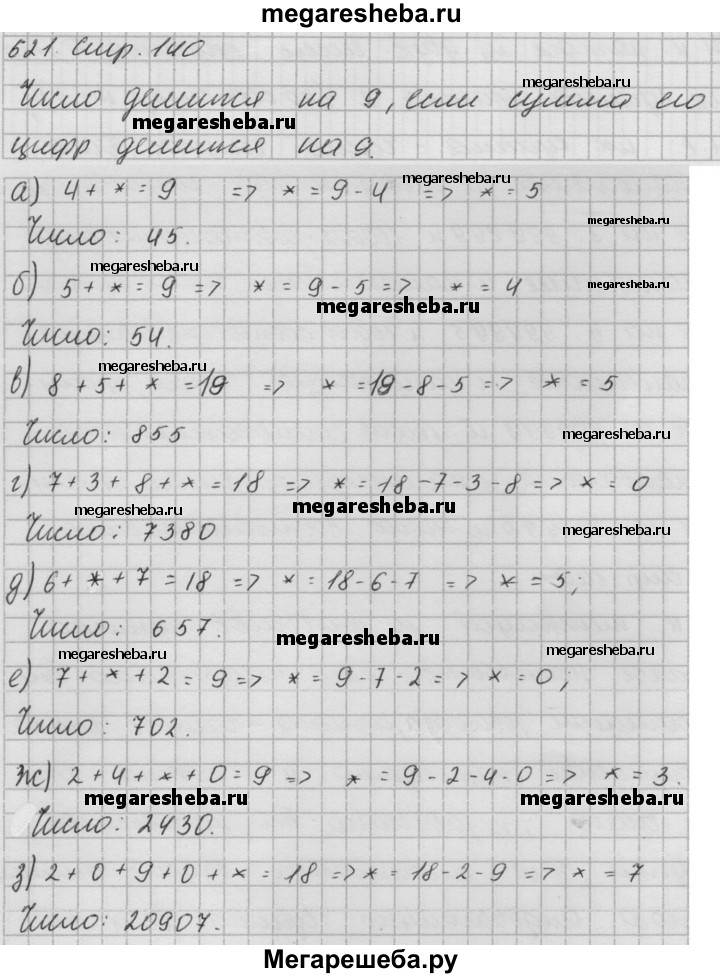 megaresheba.ru
621. Стр. 140
megaresheba.ru
Число делится на 9, если сумма его
megaresheba.ru
цифр делится на 9.
megaresheba.ru
а) 4 + * = 9 => * = 9 - 4 => * = 5
megaresheba.ru
Число: 45.
megaresheba.ru
б) 5 + * = 9 => * = 9 - 5 => * = 4
megaresheba.ru
megaresheba.ru
Число: 54.
megaresheba.ru
в) 8 + 5 + * = 19 => * = 19 - 8 - 5 => * = 5
Число: 855
megaresheba.ru
г) 7 + 3 + 8 + * = 18 => * = 18 - 7 - 3 - 8 => * = 0
megaresheba.ru
megaresheba.ru
Число: 7380
megaresheba.ru
д) 6 + * + 7 = 18 => * = 18 - 6 - 7 => * = 5;
Число: 657.
megaresheba.ru
megaresheba.ru
megaresheba.ru
е) 7 + * + 2 = 9 => * = 9 - 7 - 2 => * = 0;
Число: 702.
ж) 2 + 4 + * + 0 = 9 => * = 9 - 2 - 4 - 0 => * = 3.
megaresheba.ru
megaresheba.ru
Число: 2430.
з) 2 + 0 + 9 + 0 + * = 18 => * = 18 - 2 - 9 => * = 7
Число: 20907.
Мегарешеба.ру